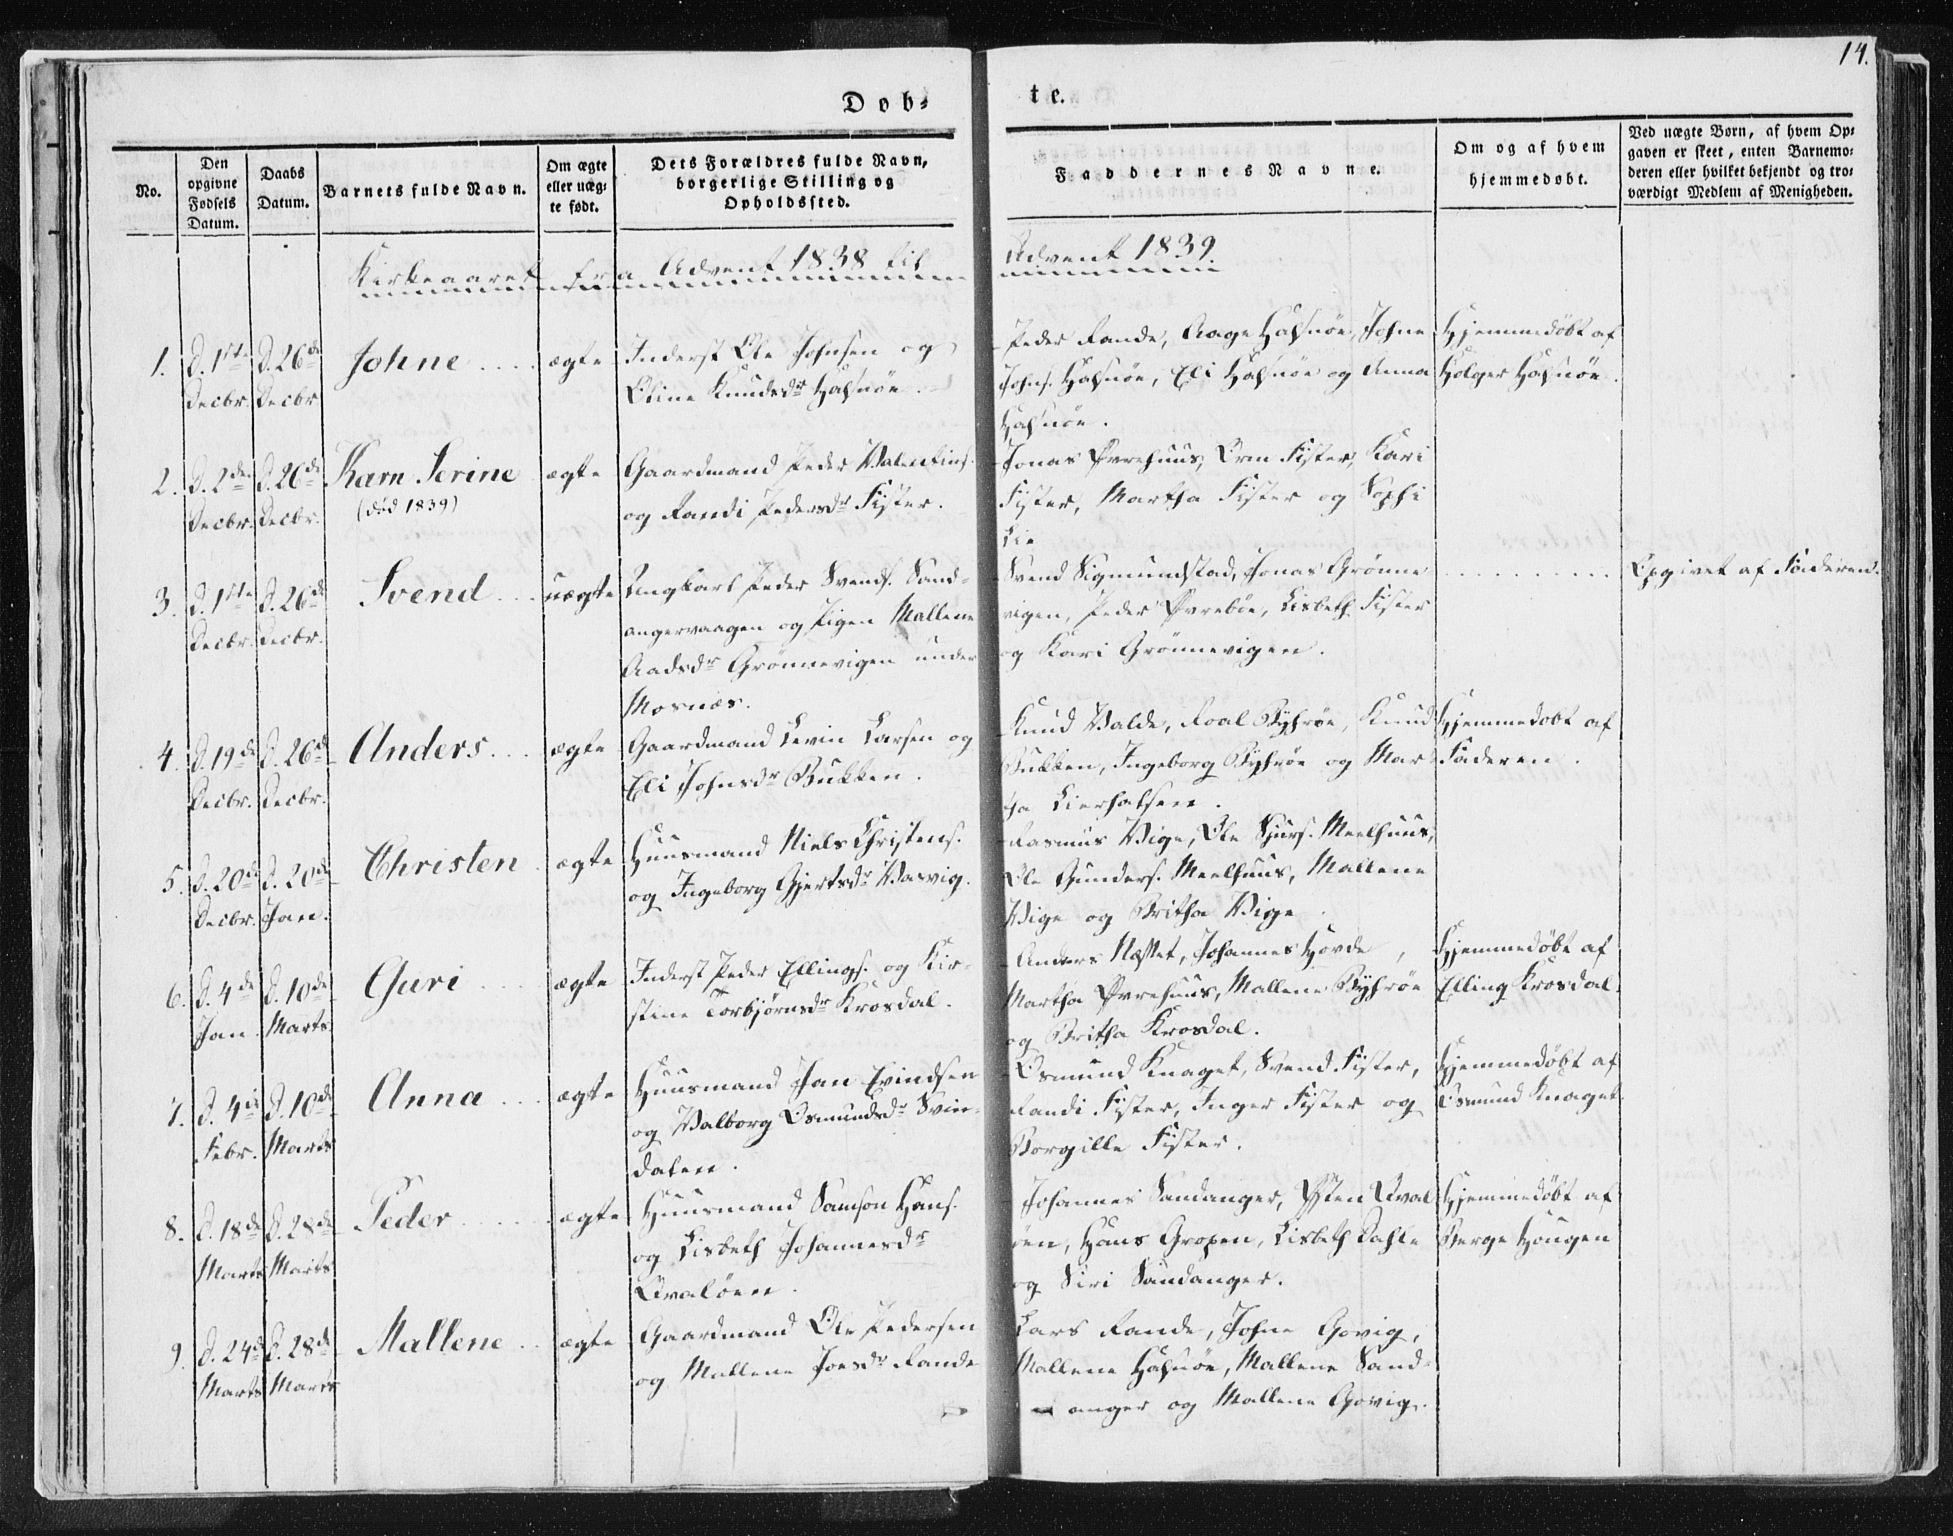 14.
Døb-
te.
No.
Den
opgivne
Fødsels
Datum.
Daabs
Datum.
Barnets fulde Navn.
Om ægte
eller uæg-
te født.
Dets Forældres fulde Navn,
borgerlige Stilling og
Opholdssted.
Faddernes Navne.
Om og af hvem
hjemmedøbt.
Ved uægte Børn, af hvem Op-
gaven er skeet, enten Barnemo-
deren eller hvilket bekjendt og tro-
værdigt Medlem af Menigheden.
Kirkeaaret fra Advent 1838 til
Advent 1839
1.
d. 1ste
Decbr.
d. 26de
Decbr
Johne
ægte
Inderst Ole Johnsen og
Stine Knudsdr Halsnöe.
Peder Rande, Aage Halsnöe, Johne
Johns. Halsnöe, Eli Halsnöe og Anna
Halsnöe.
Hjemmedöbt af
Holger Halsnöe.
2.
d. 2den
Decbr.
d. 26de
Decbr.
Karn Serine
(død 1839)
ægte
Gaardmand Peder Valentins.
og Randi Pedersdr Fister.
Jonas Øvrehuus, Orm Fister, Kari
Fister, Martha Fister og Sophi
Lie
3.
d. 1ste
Decbr.
d. 26de
Decbr.
Svend
uægte
Ungkarl Peder Svends. Sand-
angervaagen og Pigen Mallene
Aadsdr Grönnevigen under
Mosnæs.
Svend Sigmundstad, Jonas Grönne
vigen, Peder Øvreböe, Lisbeth Fister
og Kari Grönnevigen.
Opgivet af Faderen.
4.
d. 19de
Decbr.
d. 26de
Decbr.
Anders
ægte
Gaardmand Levin Larsen og
Eli Johnsdr Bukken.
Knud Valde, Roal Byhröe, Knud
Bukken, Ingeborg Byhröe og Mar-
tha Lierhalsen.
Hjemmedöbt af
Faderen.
5.
d. 20de
Decbr.
d. 20de
Jan.
Christen
ægte
Huusmand Niels Christens.
og Ingeborg Gjertsdr Vasvig.
Rasmus Vige, Ole Sjurs. Meelhuus,
Ole Gunders. Meelhuus, Mallene
Vige og Britha Vige.
6.
d. 4de
Jan.
d. 10de
Marts
Guri
ægte
Inderst Peder Ellings. og Kir-
stine Torbjørnsdr Krosdal.
Anders Næsset, Johannes Hovde,
Martha Øvrehuus, Mallene Byhröe
og Britha Krosdal.
Hjemmedöbt af
Elling Krosdal.
7.
d. 4de
Febr.
d. 10de
Marts
Anna
ægte
Huusmand Jan Evindsen
og Valborg Osmundsdr Svin-
dalen.
Osmund Knaget, Svend Fister,
Randi Fister, Inger Fister og
Borgille Fister.
Hjemmedöbt af
Osmund Knaget.
8.
d. 18de
Marts
d. 28de
Marts
Peder
ægte
Huusmand Samson Hans.
og Lisbeth Johannesdr
Qvalöen.
Johannes Sandanger, Østen Qval
öen, Hans Gropen, Lisbeth Dahle
og Siri Sandanger.
Hjemmedöbt af
Berge Hougen
9.
d. 24de
Marts
d. 28de
Marts
Mallene
ægte
Gaardmand Ole Pedersen
og Mallene Joesdr Rande
Lars Rande, Johne Govig,
Mallene Halsnöe, Mallene Sand-
anger og Mallene Govig.